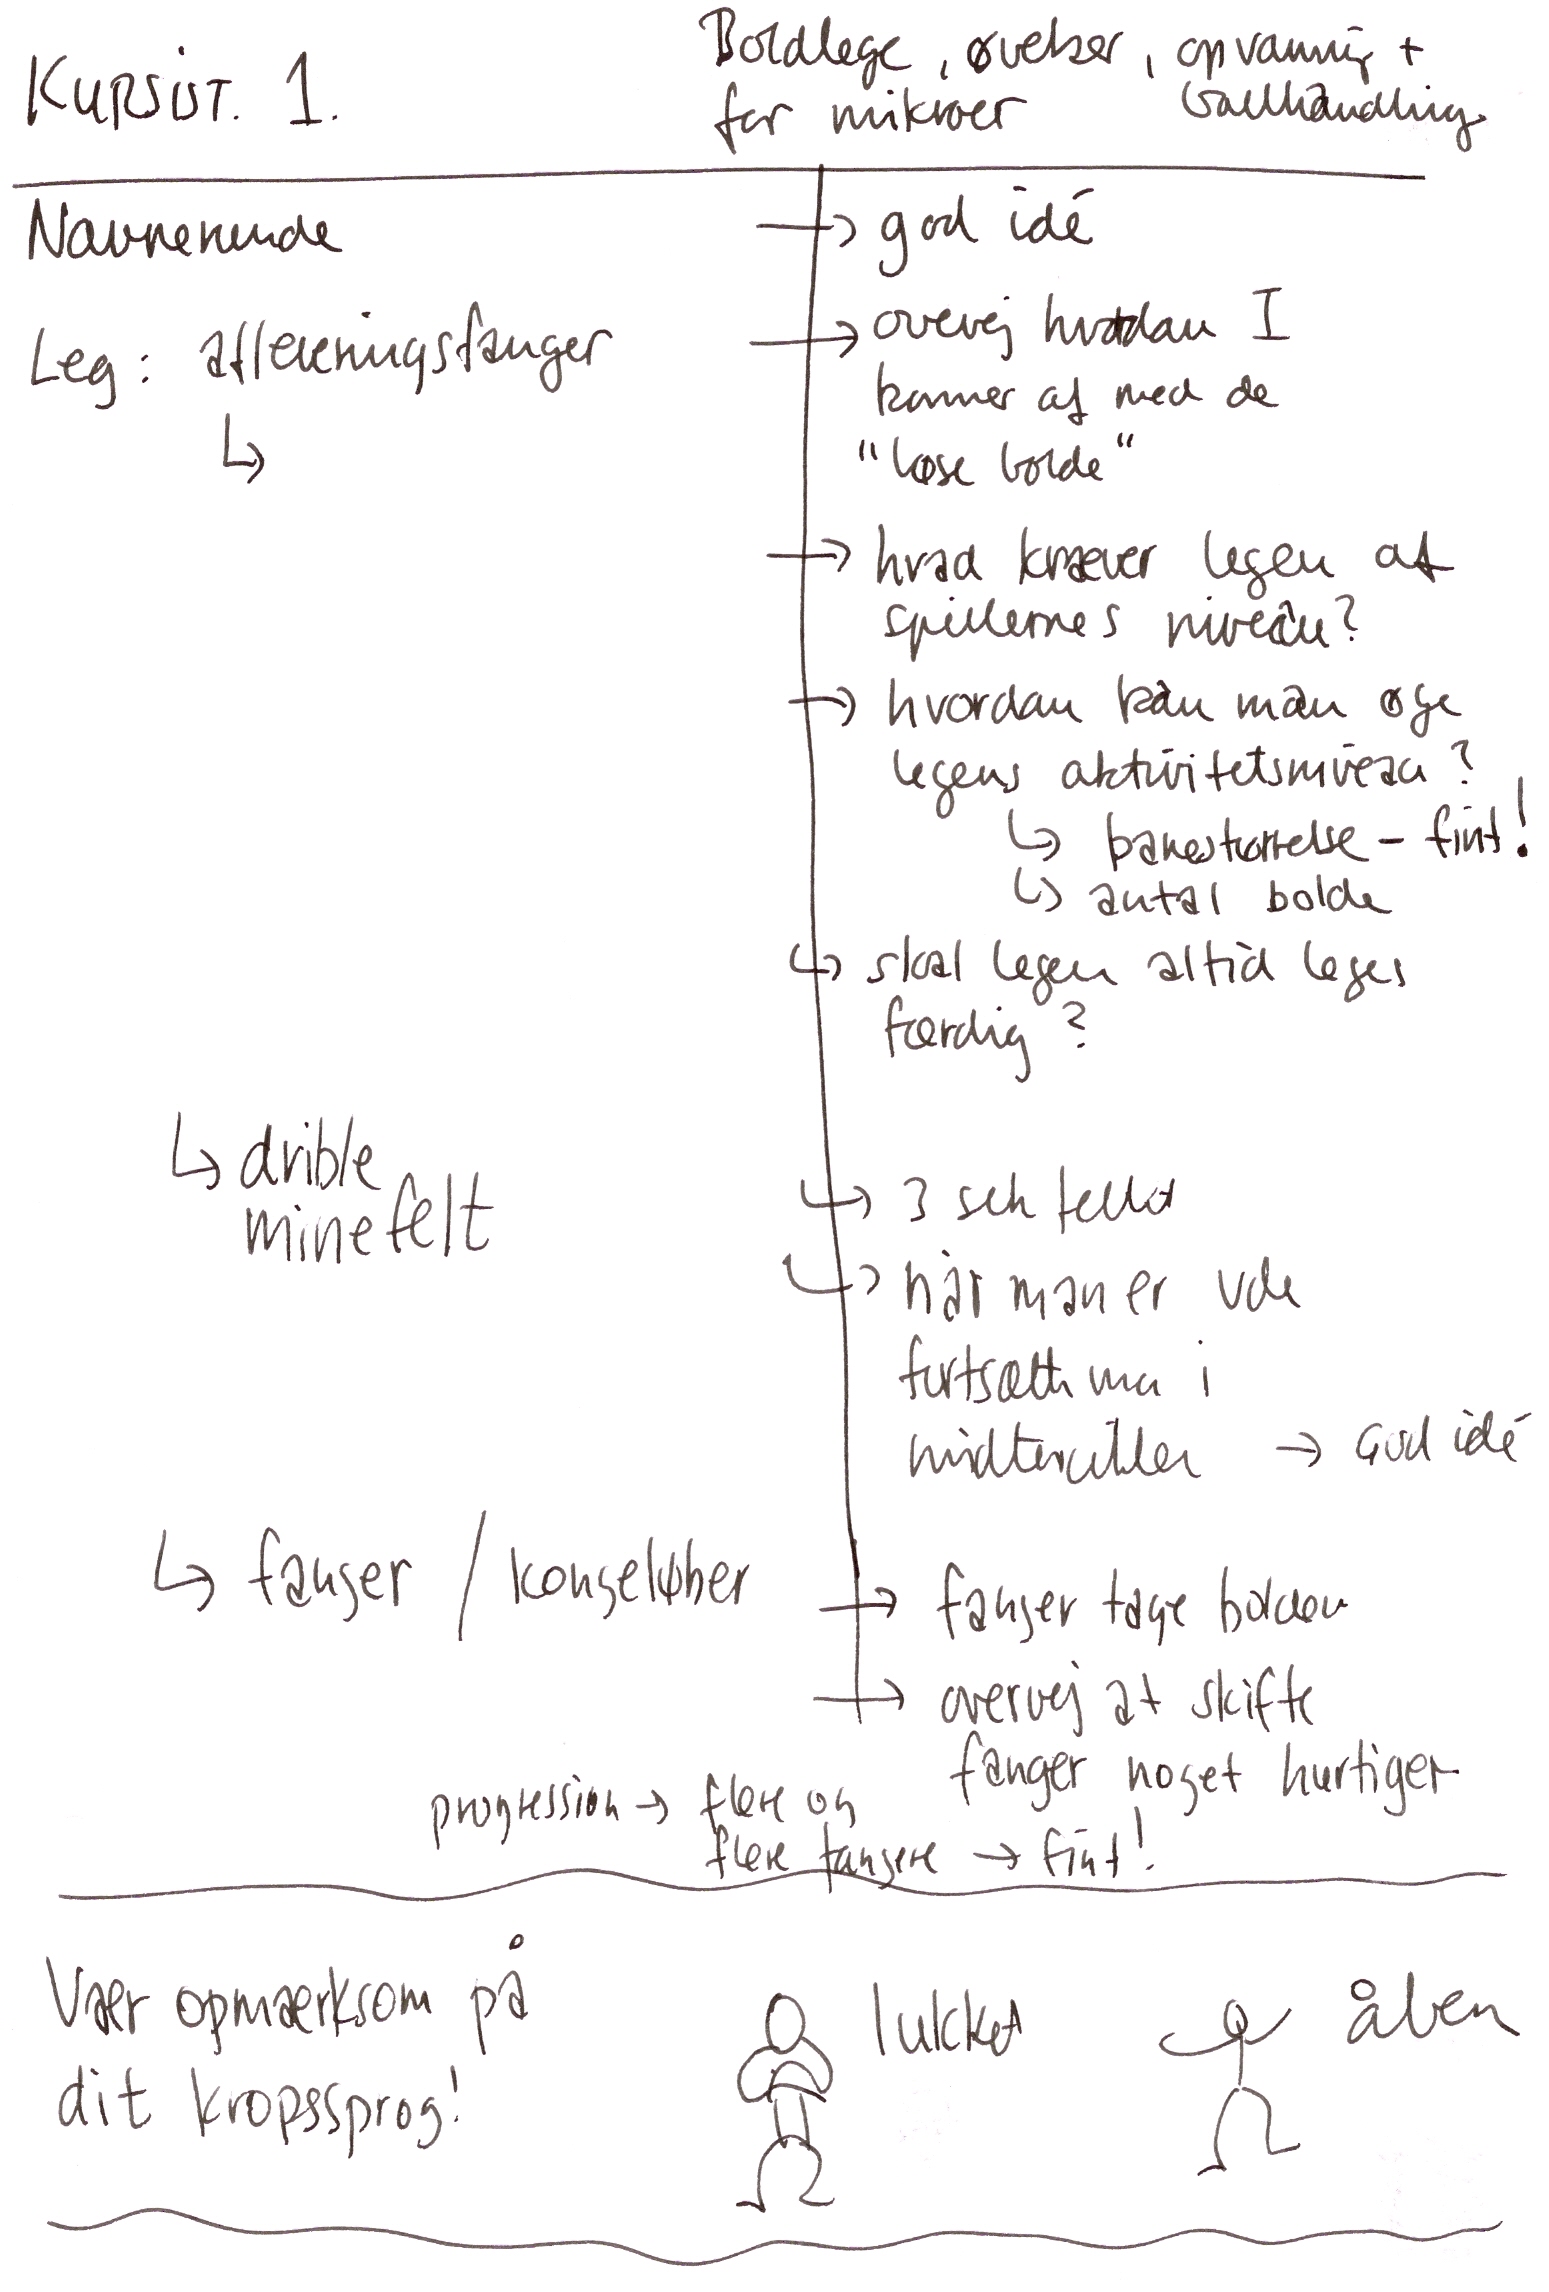 KURSIST. 1.
Boldlege, øvelser, opvarmnig +
for mikroer ballhåndling
Navnerunde → god idé
Leg: afleveringsfanger → overvej hvordan I
kommer af med de
"løse bolde"
→ hvad kræver legen af
spillernes niveau?
→ hvordan kan man øge
legens aktivitetsniveau?
↳ banestørrelse - fint!
↳ antal bolde
↳ skal legen altid leges
færdig?
↳ drible
minefelt
↳ 3 sek
↳ når man er ude
fortsætter man i
midtercirklen → God idé
↳ fanger / kongeløber
→ fanger tage bolden
→ overvej at skifte
fanger noget hurtiger
progression → flere og
flere fangere → fint!
Vær opmærksom på
dit kropssprog!
lukket
åben